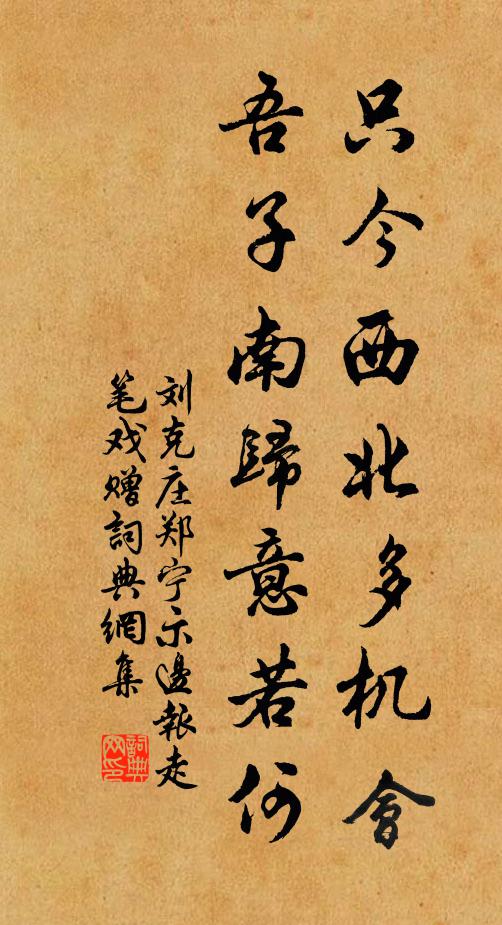 只今西北多机會
吾子南歸意若何
刘克庄郑宁示邊報走
笔戏赠詞典網集
詞典
网印